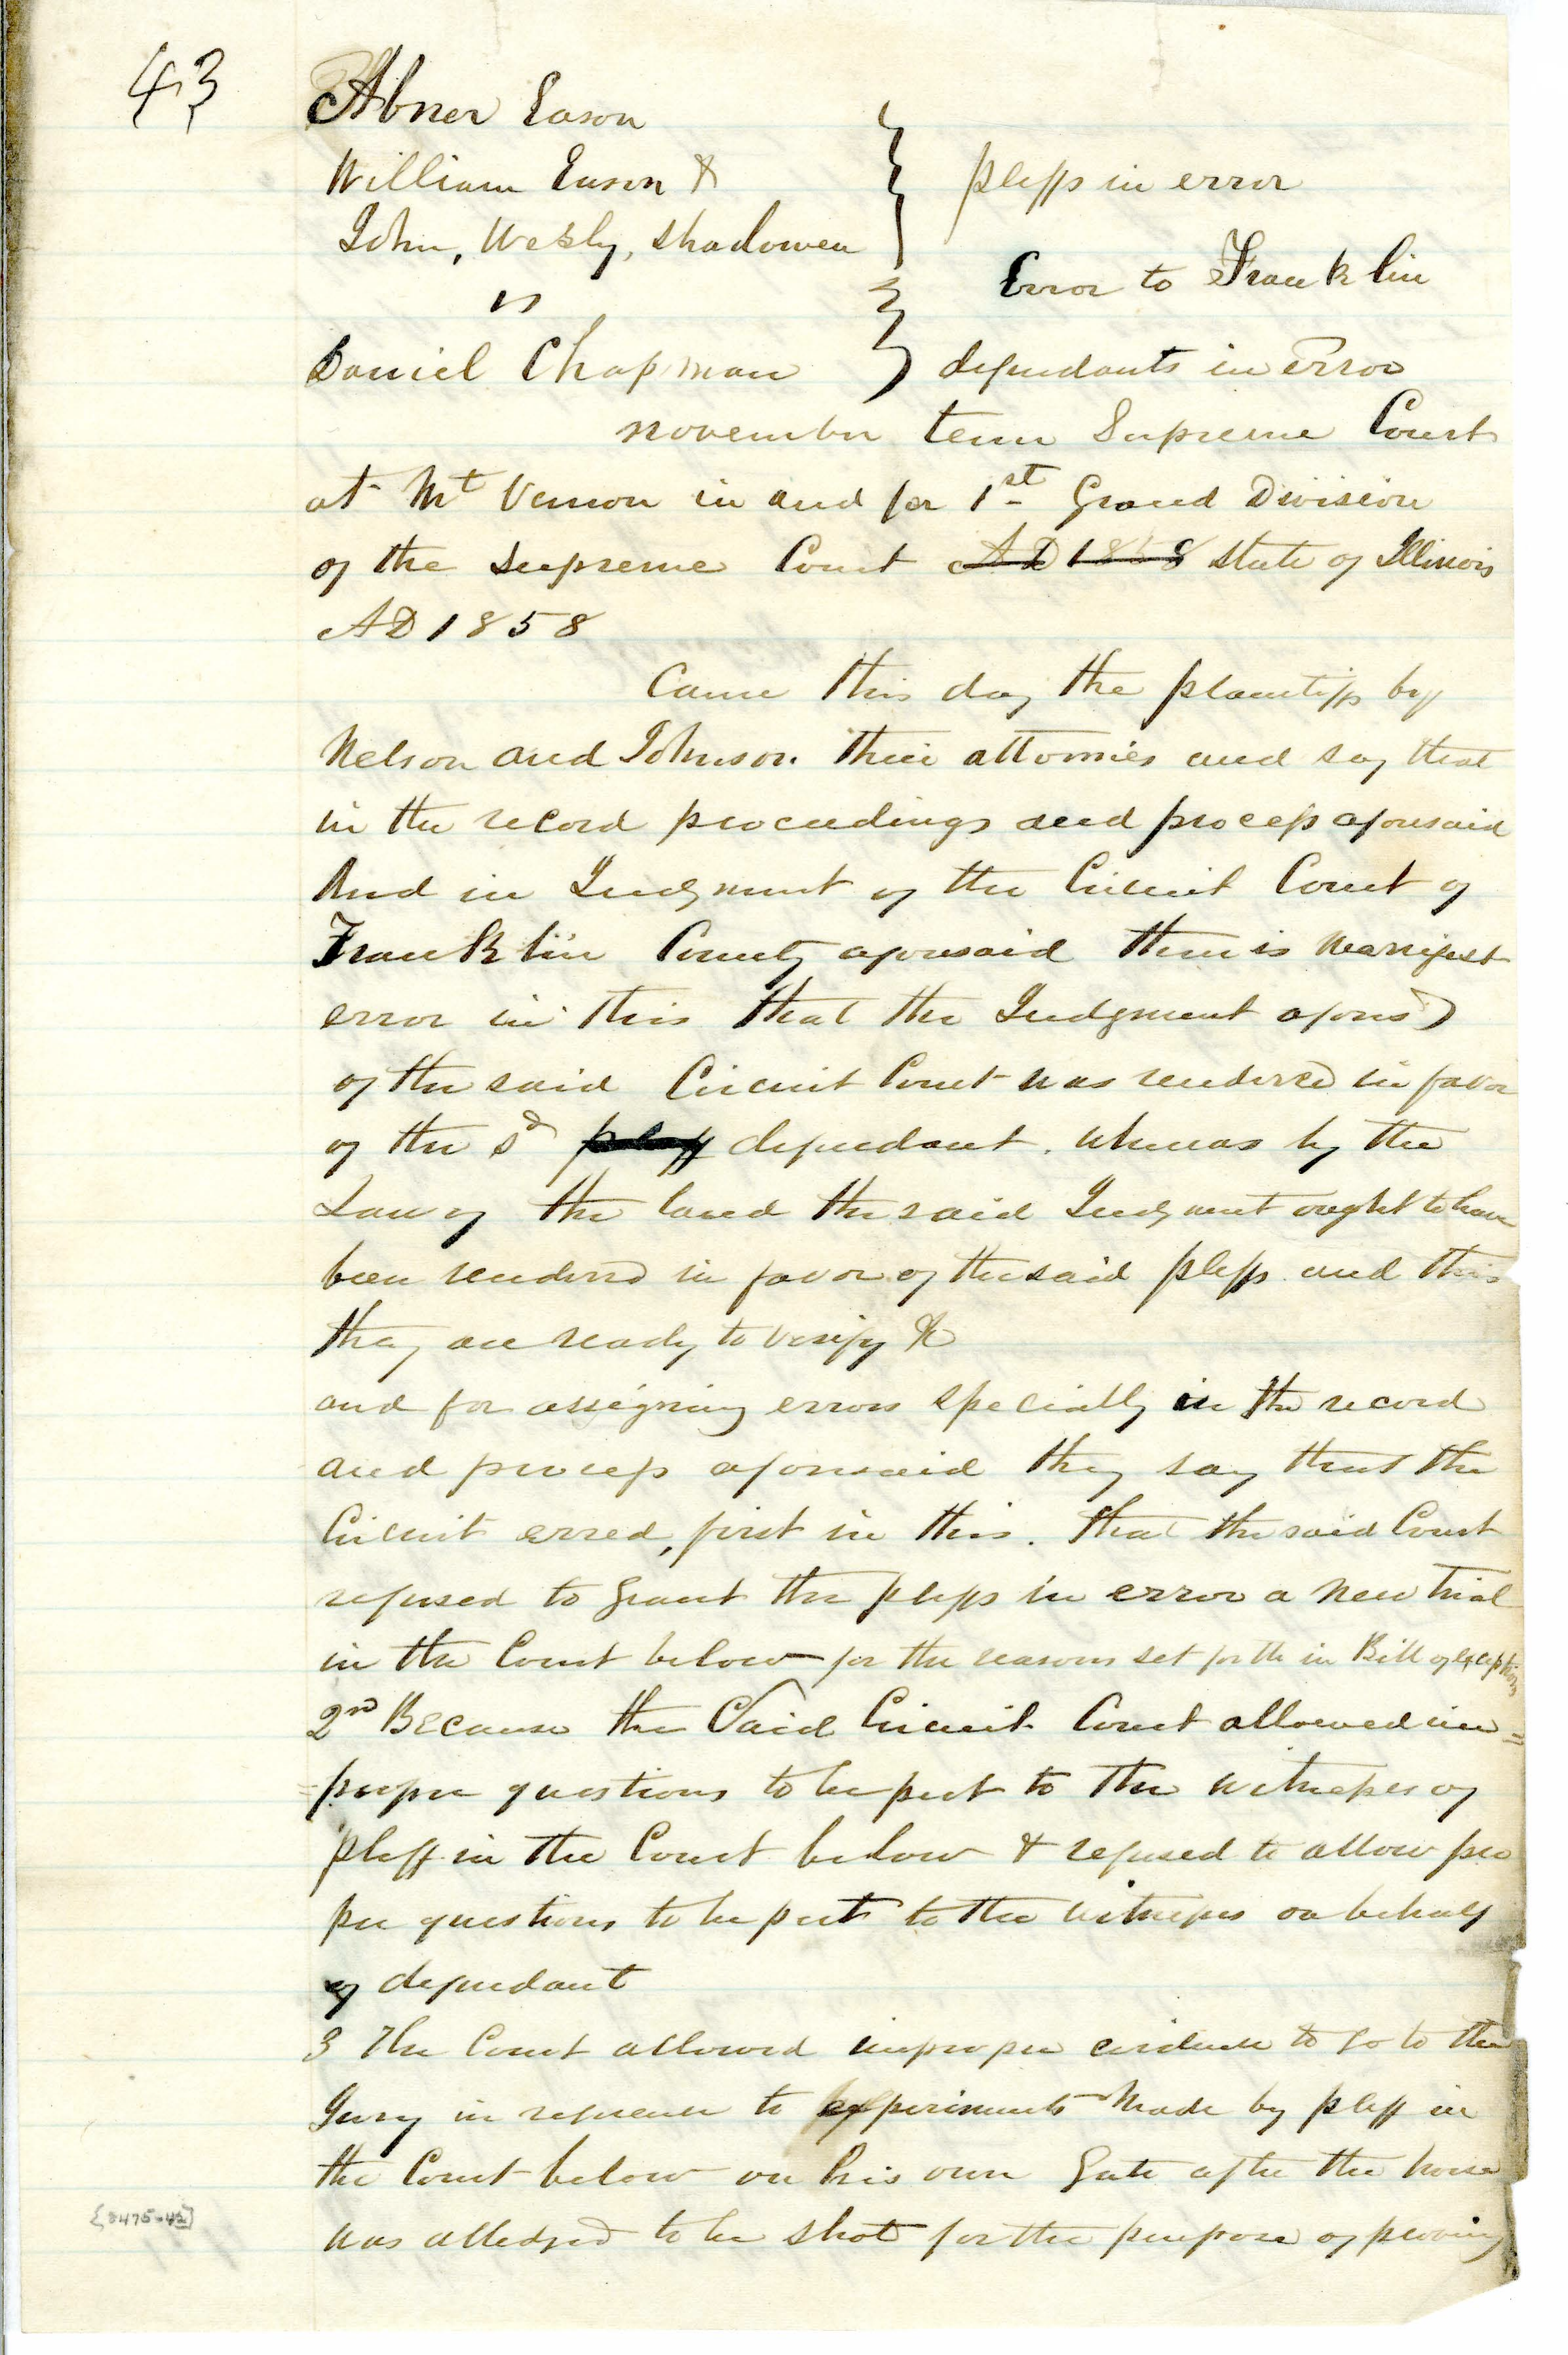 43
Abner Eason
William Eason &
John, Wesly, Shadowen
vs
Daniel Chapman
plffs in error
Error to Franklin
defendants in Error
november term Supreme Court
at Mt Vernon in and for 1st Grand Division
of the Supreme Court AD 1858 State of Illinois
AD 1858
Came this day the plantiffs by
Nelson and Johnson their attornies and say that
in the record proceedings and process aforesaid
And in Judgment of the Circuit Court of
Franklin County aforesaid there is Manifest
error in this that the Judgment afores'd
of the said Circuit Court was rendered in favor
of the sd plaff defendant. whereas by the
Law of the land the said Judgment ought to have
been rendered in favor of the said plffs and this
they are ready to verify &c
and for assigning errors specially in the record
and process aforesaid they say that the
Circuit erred, first in this. that the said Court
refused to grant the plffs in error a new trial
in the Court below for the reasons set forth in Bill of exceptions
2nd Because the Said Circuit Court allowed im=
=proper questions to be put to the witnesses of
plaff in the Court below & refused to allow pro
per questions to be put to the witnesses on behalf
of defendant
3 The Court allowed improper evidence to go to the
Jury in reference to experiments made by plff in
the Court below on his own Gate after the horse
was alledged to be shot for the purpose of proving
[8475-43]